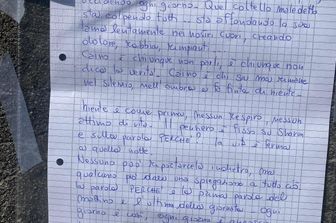 ogni giorno. Quel coltello maledetto
sta colpendo tutti... sta affondando la sua
lama lentamente nei nostri cuori, creando
dolore, rabbia, rimpianti...
Caino è chiunque non parli, è chiunque non
dica la verità. Caino è chi sa ma rimane
nel silenzio, nell'ombra e fa finta di niente.
Niente è come prima, nessun respiro, nessun
attimo di vita. Il pensiero è fisso su Sharon
e sulla parola PERCHÉ? La vita è ferma
a quella notte.
Nessuno può riportarcela indietro, ma
qualcuno può dare una spiegazione a tutto ciò
la parola PERCHÉ è la prima parola del
mattino e l'ultima della giornata. Ogni
giorno è così, ogni giorno